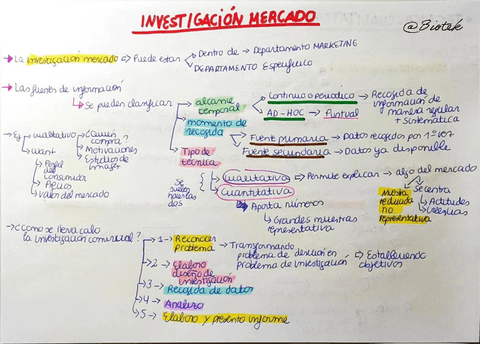 INVESTIGACIÓN MERCADO
@Biotek
La investigación mercado → Puede estar
Dentro de → Departamento MARKETING
DEPARTAMENTO Específico
Las fuentes de información
Se pueden clasificar
alcance temporal
Continuo o periodico → Recogida de información de manera regular + Sistemática
AD-HOC → Puntual
momento de recogida
Fuente primaria → Datos recogidos por 1ª vez
Fuente secundaria → Datos ya disponible
Tipo de técnica
Ej cualitativo
compra
Motivaciones
Estudios de imagen
cuant
Perfil del consumidor
Precios
Valor del mercado
Se suelen hacer las dos
Cualitativa → Permite explicar → algo del mercado
Se centra
Actitudes
Creencias
Muestra reducida no representativa
Cuantitativa
Aporta números
Grandes muestras representativa
¿Como se lleva cabo la investigación comercial?
1 → Reconocer problema → Transformando problema de decisión en problema de investigación → Estableciendo objetivos
2 → Elabora diseño de investigación
3 → Recogida de datos
4 → Analizo
5 → Elaboro y presento informe